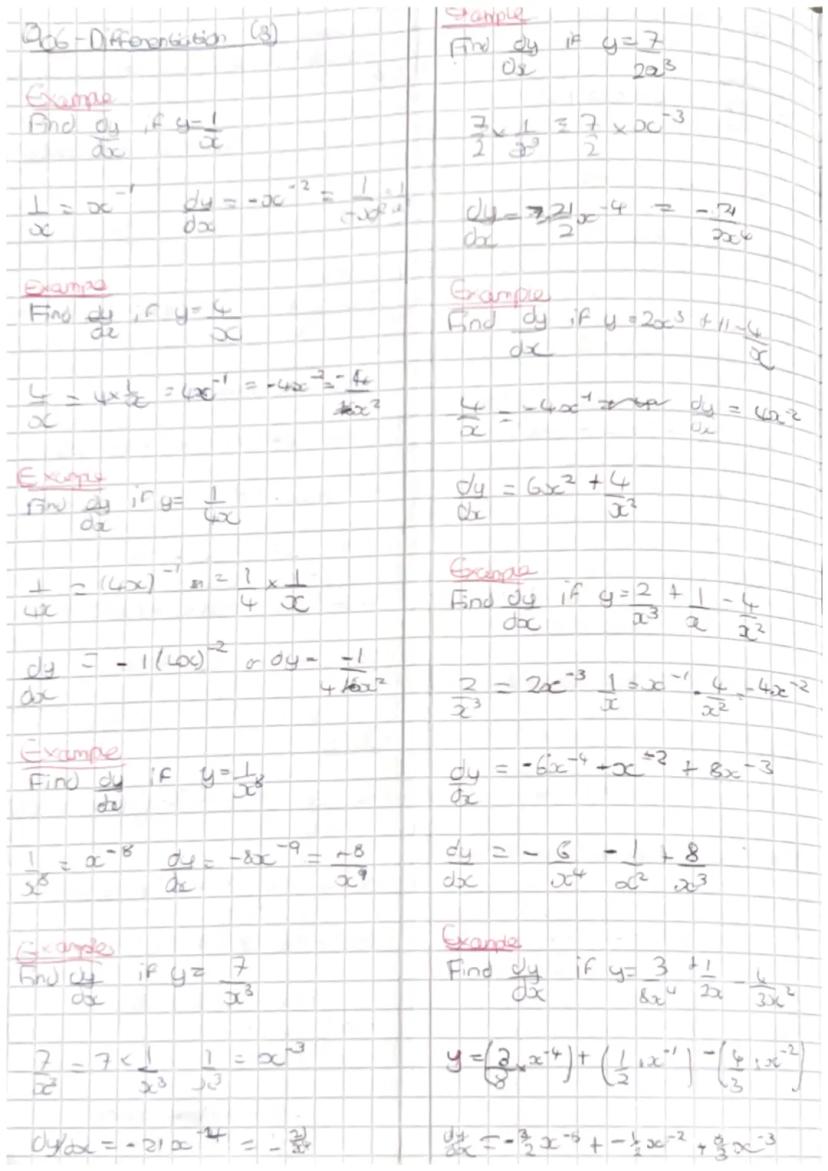 Q06 - Differentiation (3)
Example
Find dy/dx if y = 1/x
1/x = x⁻¹ dy/dx = -x⁻² = 1/-x²
Example
Find dy/dx if y = 4/x
4/x = 4 × 1/x = 4x⁻¹ = -4x⁻² = -4/x²
Example
Find dy/dx if y = 1/4x
1/4x = (4x)⁻¹ = 1/4 × 1/x
dy/dx = -1(4x)⁻² or dy = -1/4x²
Example
Find dy/dx if y = 1/x⁸
1/x⁸ = x⁻⁸ dy/dx = -8x⁻⁹ = -8/x⁹
Examples
Find dy/dx if y = 7/x³
7/x³ = 7 × 1/x³ 1/x³ = x⁻³
dy/dx = -21x⁻⁴ = -21/x⁴
Example
Find dy/dx if y = 7/2x³
7/2 × 1/x³ = 7/2 × x⁻³
dy/dx = -21/2 x⁻⁴ = -21/2x⁴
Example
Find dy/dx if y = 2x³ + 11 - 4/x
4/x = -4x⁻¹ dy/dx = 4x⁻²
dy/dx = 6x² + 4/x²
Example
Find dy/dx if y = 2/x³ + 1/x - 4/x²
2/x³ = 2x⁻³ 1/x = x⁻¹ - 4/x² = -4x⁻²
dy/dx = -6x⁻⁴ - x⁻² + 8x⁻³
dy/dx = - 6/x⁴ - 1/x² + 8/x³
Example
Find dy/dx if y = 3/8x⁴ + 1/2x - 4/3x²
y = (3/8 × x⁻⁴) + (1/2 × x⁻¹) - (4/3 × x⁻²)
dy/dx = -3/2 x⁻⁵ + -1/2 x⁻² + 8/3 x⁻³